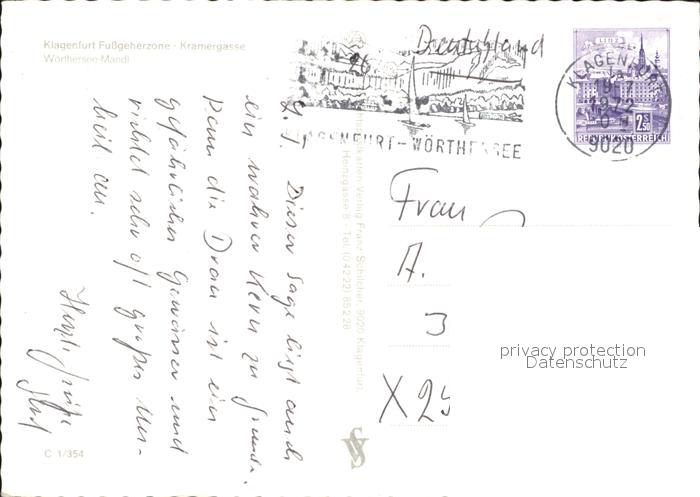 Klagenfurt Fußgeherzone · Kramergasse
Wörthersee-Mandl
Deutschland
LINZ
KLAGENFURT
9020
2.50
REPUBLIK ÖSTERREICH
KLAGENFURT-WÖRTHERSEE
Dieser Sage liegt auch
ein wahrer Kern zu Grunde.
Denn die Drau ist ein
gefährliches Gewässer und
richtet sehr oft großes Un-
heil an.
Herzl. Grüße
Verlag Franz Schilcher, 9020 Klagenfurt,
Heinzgasse 8 · Tel. (04222) 85228
Frau
A.
J
X 25
privacy protection
Datenschutz
C 1/354